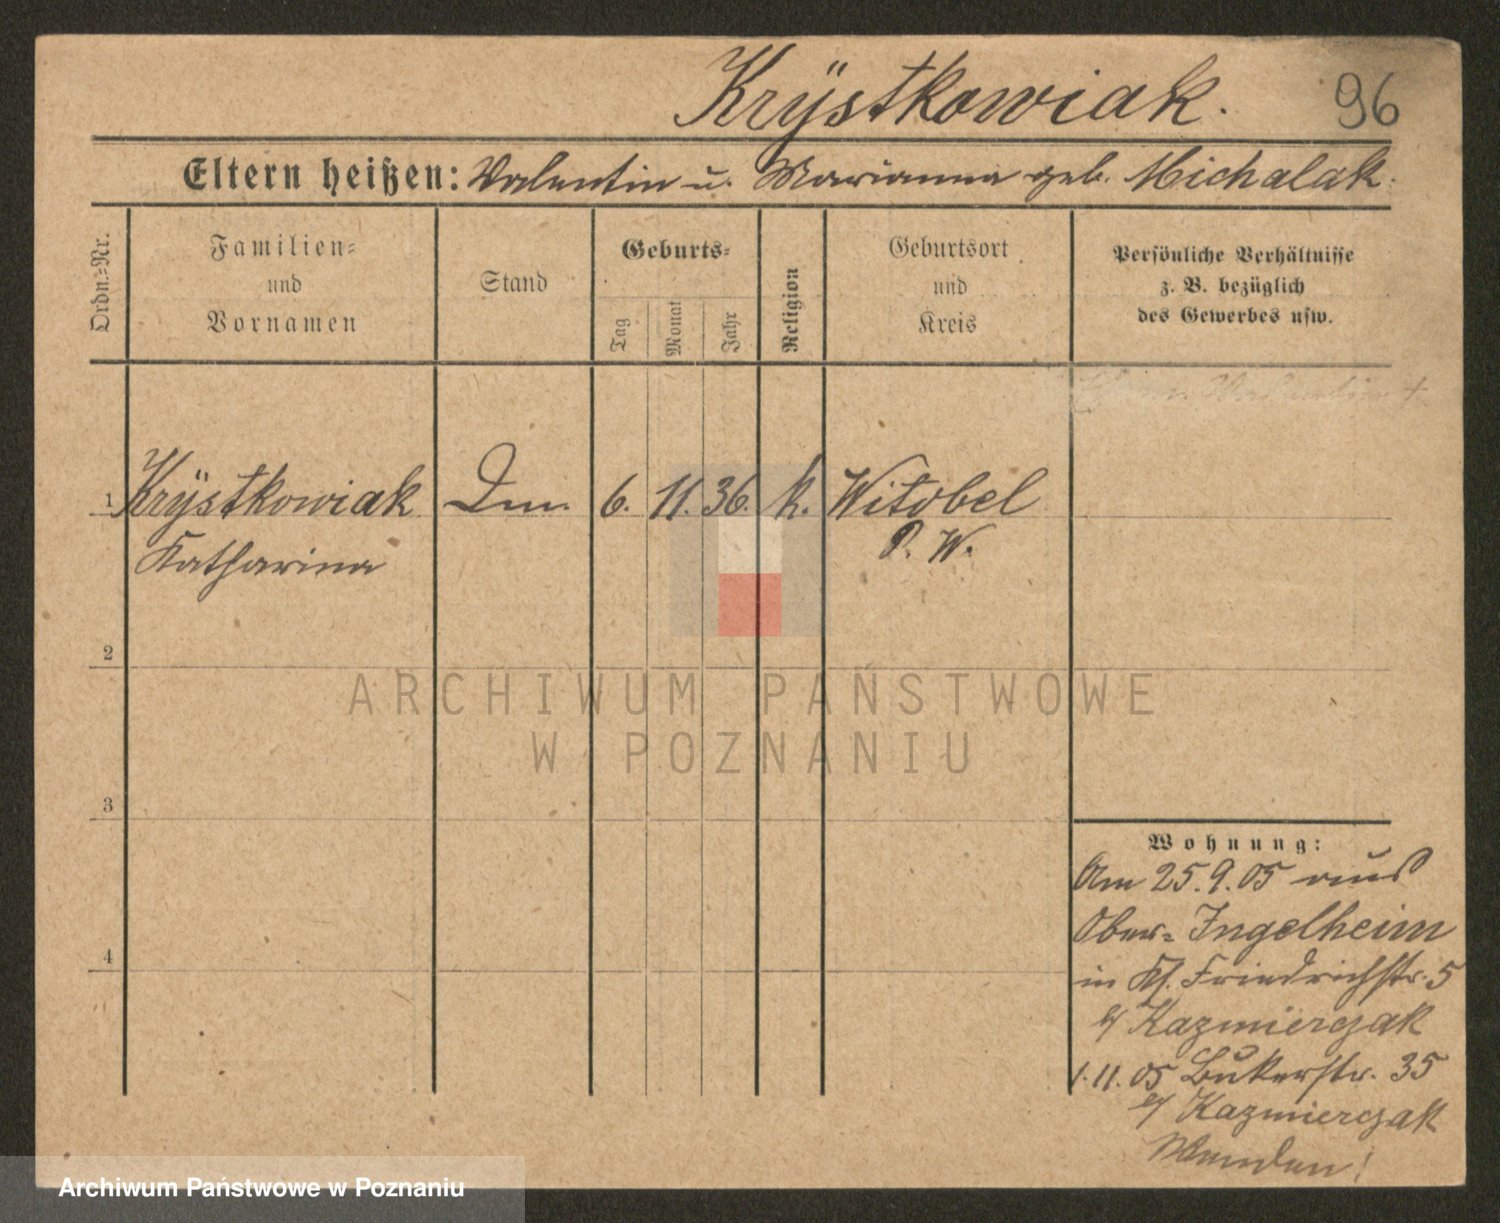 Krÿstkowiak. 96
Eltern heißen: Valentin u. Marianna geb. Michalak.
Ordn.=Nr.
Familien=
und
Vornamen
Stand
Geburts=
Tag
Monat
Jahr
Religion
Geburtsort
und
Kreis
Persönliche Verhältnisse
z. B. bezüglich
des Gewerbes usw.
1 Krÿstkowiak 6. 11. 36. k. Witobel
Katharina P. W.
2
3
4
Wohnung:
Am 25.9.05 aus
Ober= Ingelheim
in Friedrichstr. 5
b/ Kazmierczak
1.11.05 Bukerstr. 35
b/ Kazmierczak
ARCHIWUM PAŃSTWOWE
W POZNANIU
Archiwum Państwowe w Poznaniu